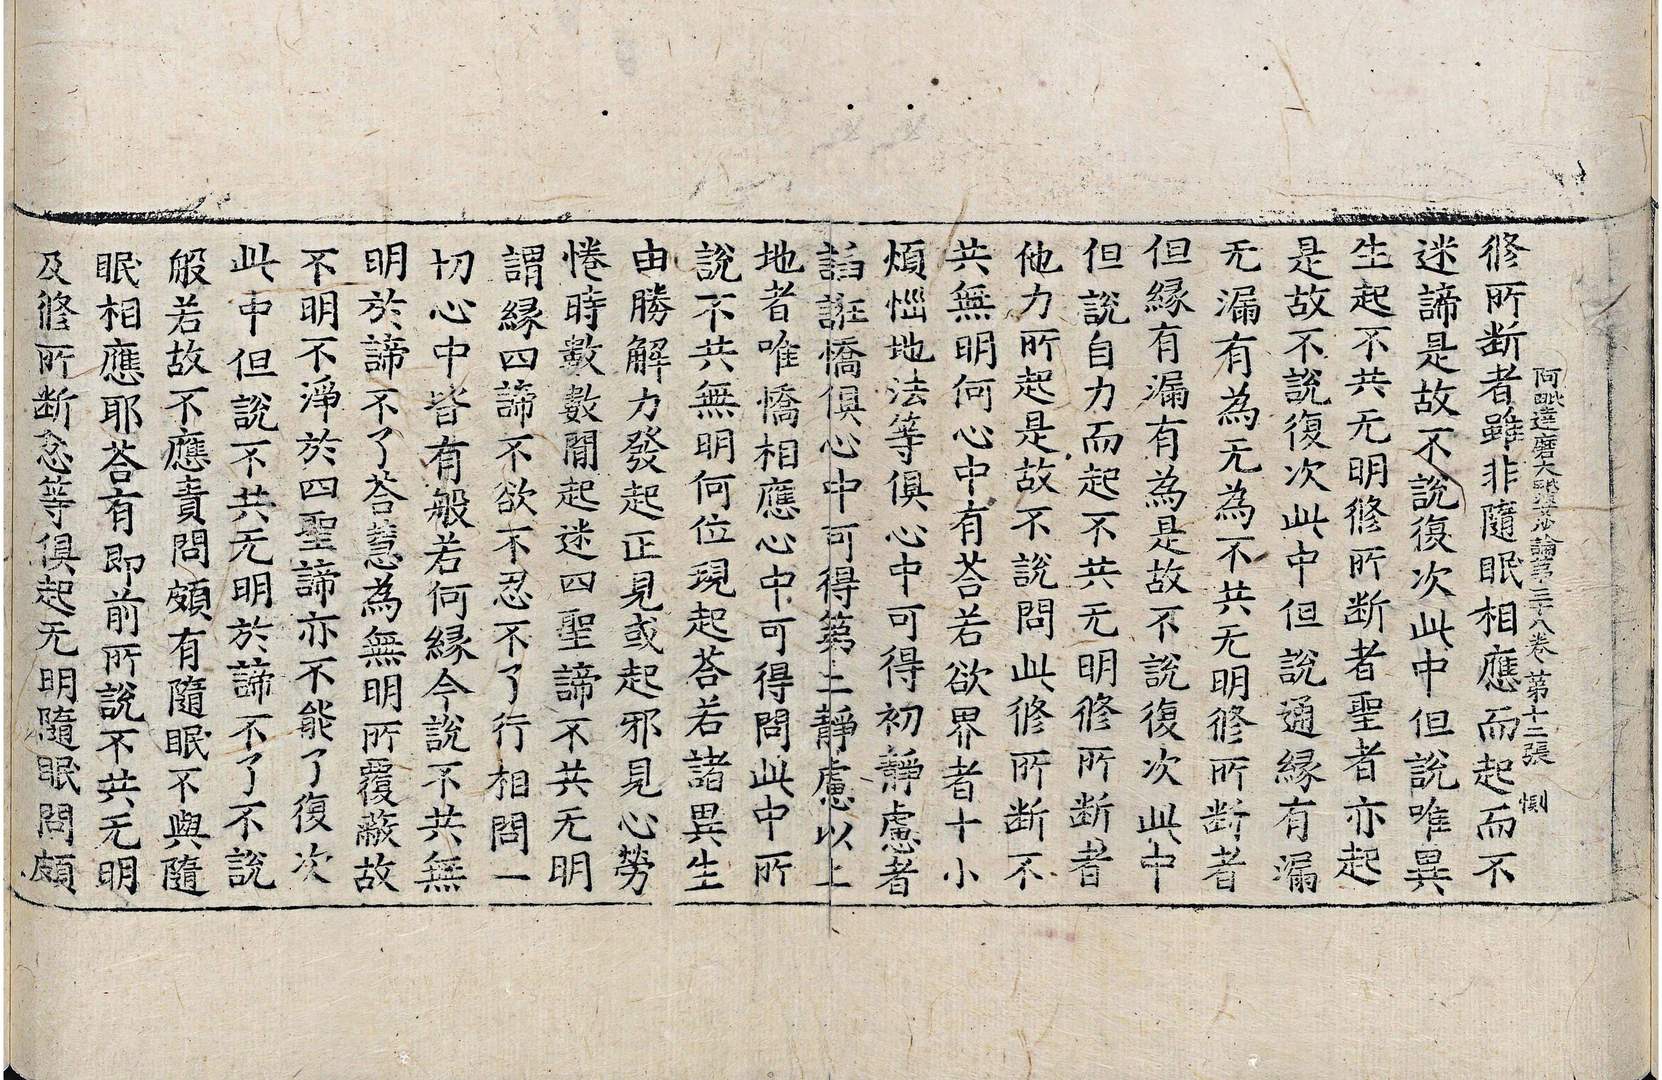 阿毗達磨大毗婆沙論第三十八卷 第十二張 惻
修所斷者雖非隨眠相應而起而不
迷諦是故不說復次此中但說唯異
生起不共无明修所斷者聖者亦起
是故不說復次此中但說通緣有漏
无漏有為无為不共无明修所斷者
但緣有漏有為是故不說復次此中
但說自力而起不共无明修所斷者
他力所起是故不說問此修所斷不
共無明何心中有荅若欲界者十小
煩惱地法等俱心中可得初靜慮者
諂誑憍俱心中可得第二靜慮以上
地者唯憍相應心中可得問此中所
說不共無明何位現起荅若諸異生
由勝解力發起正見或起邪見心勞
惓時數數間起迷四聖諦不共无明
謂緣四諦不欲不忍不了行相問一
切心中皆有般若何緣今說不共無
明於諦不了荅慧為無明所覆蔽故
不明不淨於四聖諦亦不能了復次
此中但說不共无明於諦不了不說
般若故不應責問頗有隨眠不與隨
眠相應耶荅有即前所說不共无明
及修所斷忿等俱起无明隨眠問頗